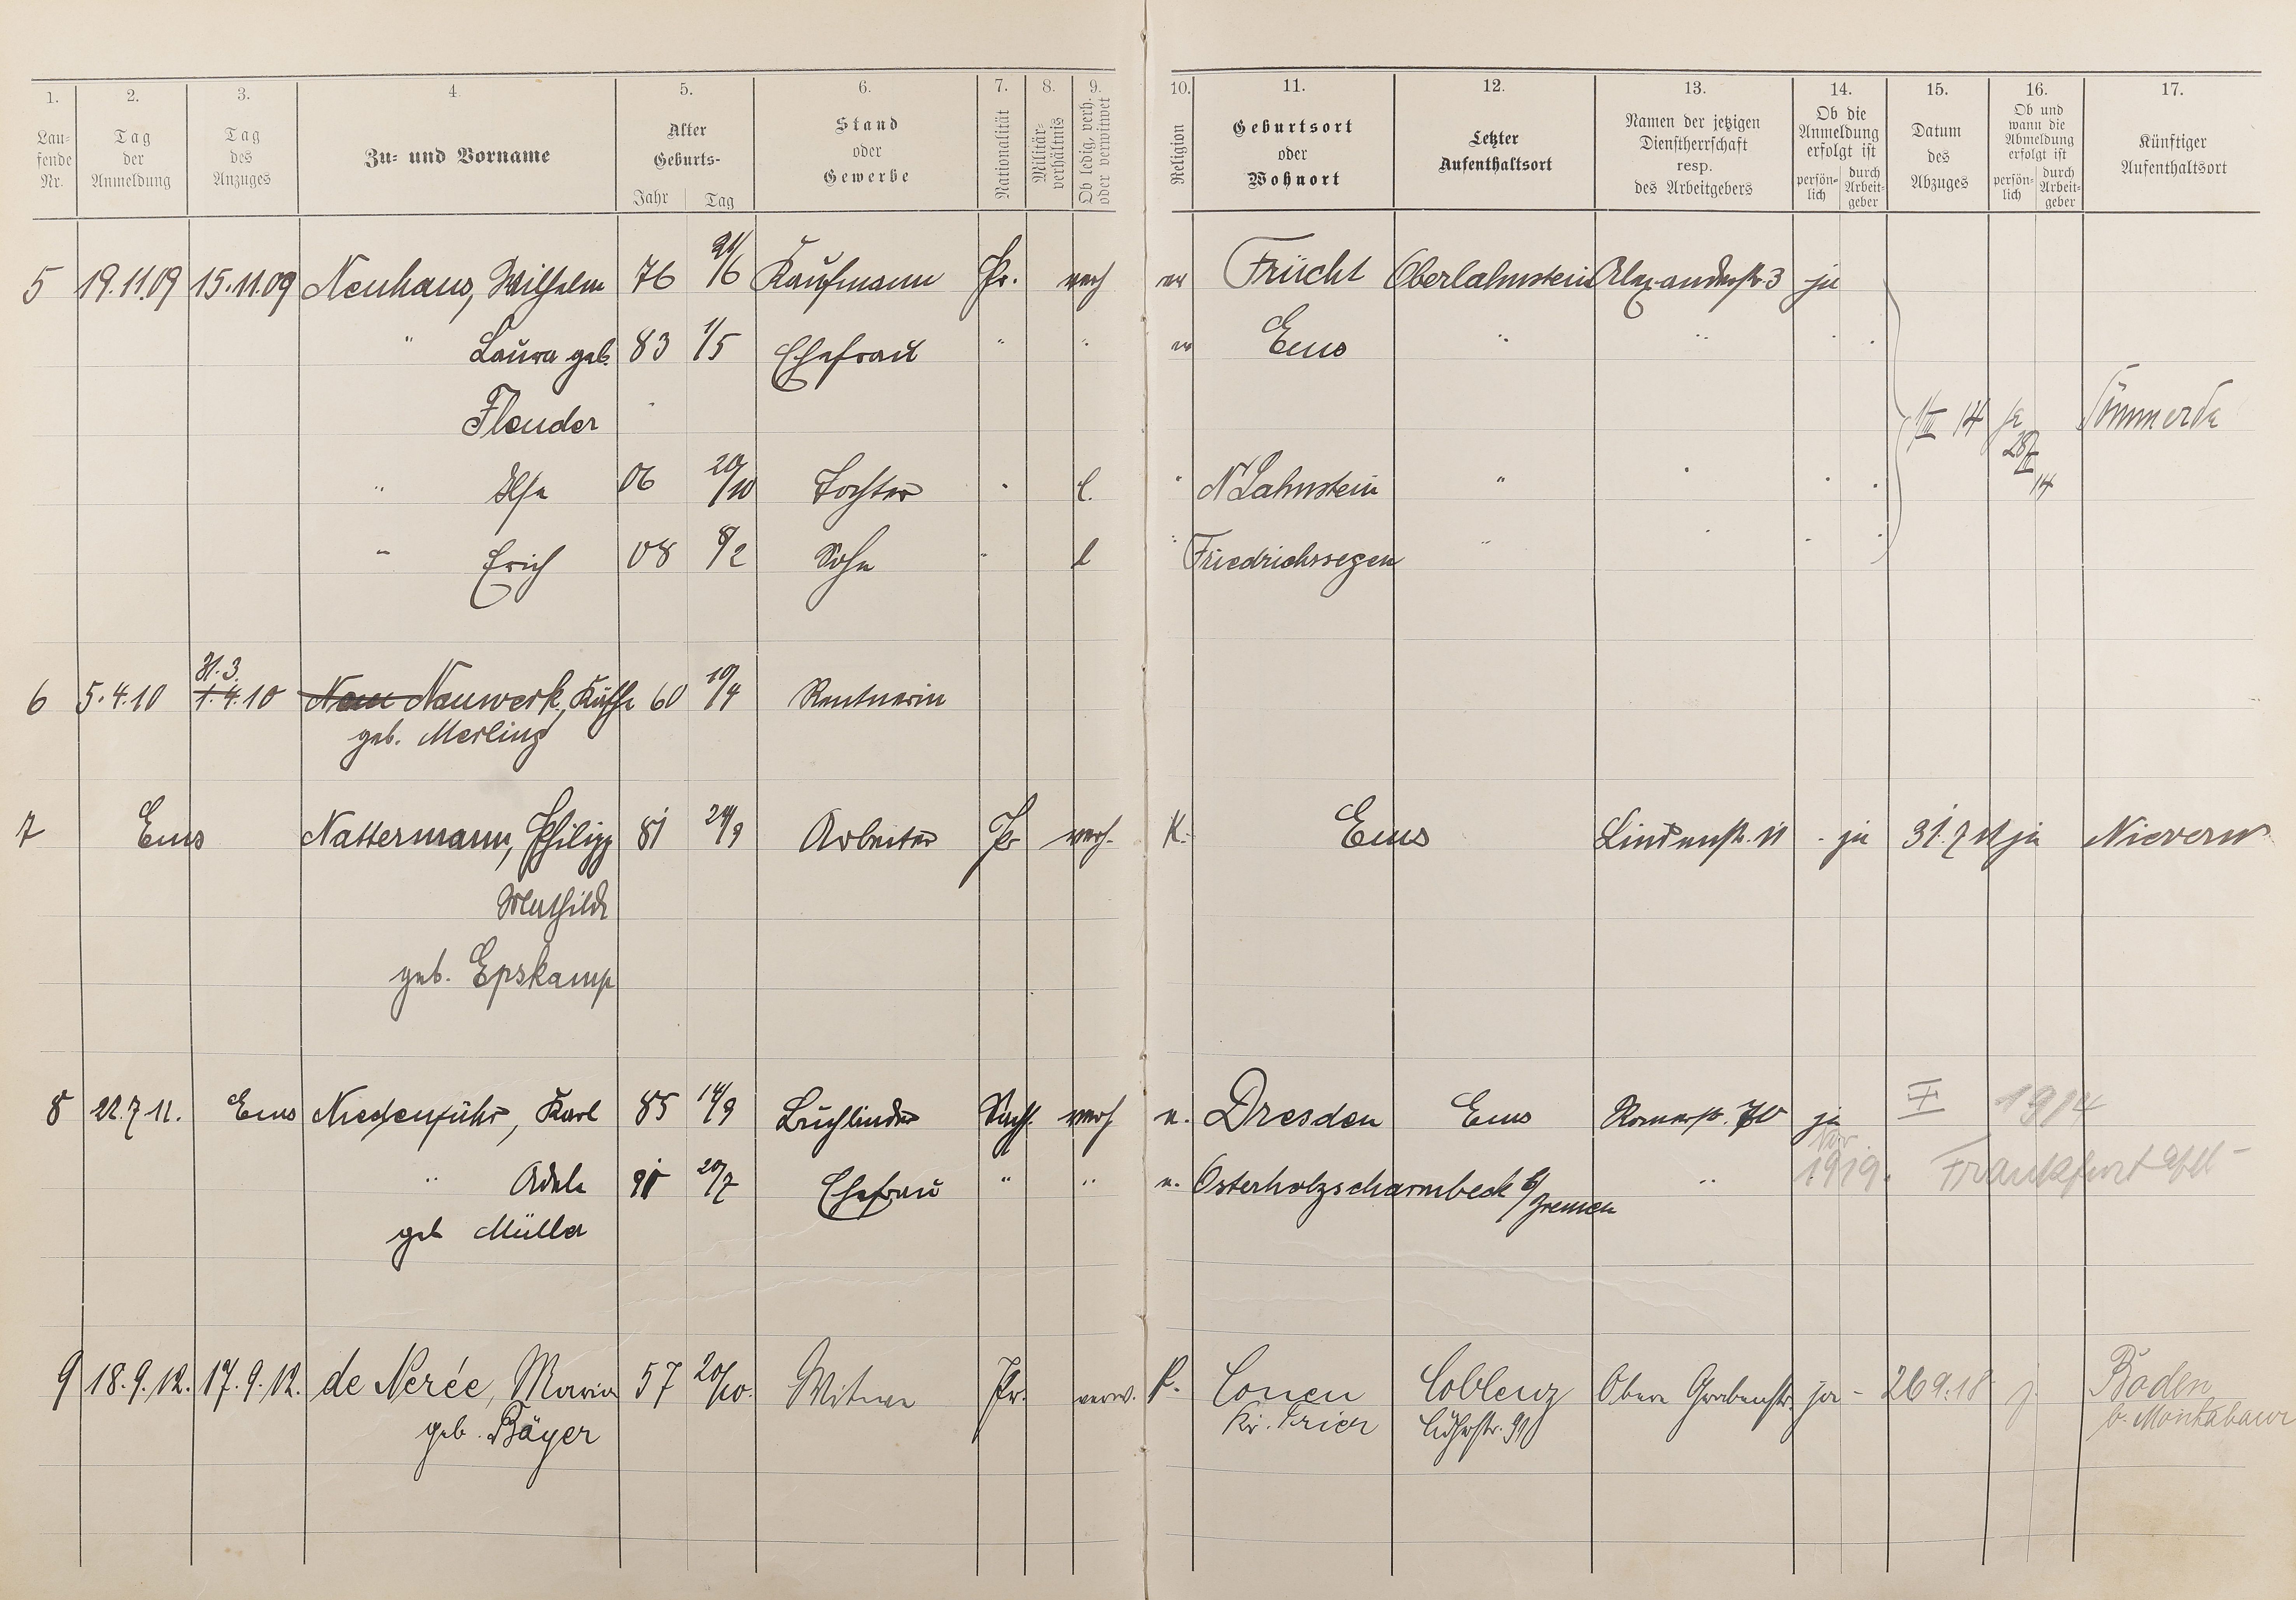 1. 2. 3. 4. 5. 6. 7. 8. 9. 10. 11. 12. 13. 14. 15. 16. 17.
Lau-
fende
Nr.
Tag
der
Anmeldung
Tag
des
Anzuges
Zu- und Vorname
Alter
Geburts-
Jahr Tag
Stand
oder
Gewerbe
Nationalität
Militär-
verhältnis
Ob ledig, verh.
oder verwitwet
Religion
Geburtsort
oder
Wohnort
Letzter
Aufenthaltsort
Namen der jetzigen
Dienstherrschaft
resp.
des Arbeitgebers
Ob die
Anmeldung
erfolgt ist
persön-
lich
durch
Arbeit-
geber
Datum
des
Abzuges
Ob und
wann die
Abmeldung
erfolgt ist
persön-
lich
durch
Arbeit-
geber
Künftiger
Aufenthaltsort
5 19.11.09 15.11.09 Neuhaus, Wilhelm 76 21/6 Kaufmann Pr. verh ev Frücht Oberlahnstein Alexanderstr. 3 ja
" Laura geb. 83 1/5 Ehefrau " " ev Ems " " " "
Flender
1/III 14 ja 28/II 14 Sömmerda
" Ilse 06 20/10 Tochter " l. " N'Lahnstein " " " "
" Erich 08 8/2 Sohn " l " Friedrichssegen " " " "
31.3.
6 5.4.10 1.4.10 Neu Neuwerk, Käthe 60 10/4 Rentnerin
geb. Merling
7 Ems Nattermann, Philipp 81 24/9 Arbeiter Pr verh. K. Ems Lindenstr. 11 - ja 31.7.11 ja Nievern
Mathilde
geb. Epskamp
8 22.7.11. Ems Niedenführ, Karl 85 14/9 Buchbinder Sachs. verh e. Dresden Ems Römerstr. 70 ja X 1914
Nov.
" Adele 91 20/7 Ehefrau " " e. Osterholzscharmbeck b/ Bremen " 1919. Frankfurt
geb Müller
9 18.9.12. 17.9.12. de Nerée, Maria 57 20/10. Witwe Pr. verw. K. Conen Coblenz Obere Grabenstr. ja - 26.9.18 j. Boden
geb. Bäyer Kr. Trier Löhrstr. 91 b. Montabaur